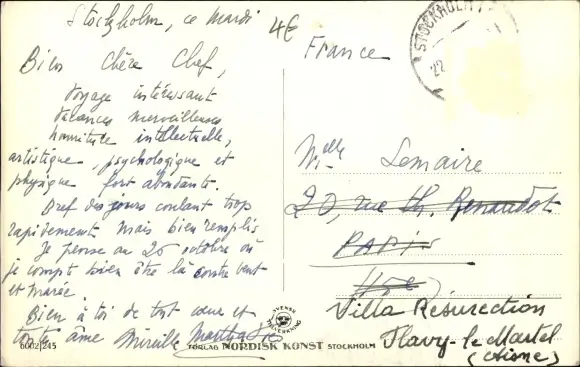 Stockholm, ce mardi
4€
Bien Chère Chef,
Voyage intéressant
vacances merveilleuses
nourriture intellectuelle,
artistique, psychologique et
physique fort abondante.
Bref des jours coulant trop
rapidement mais bien remplis
Je pense au 26 octobre où
je compte bien être là contre vent
et marée
Bien à toi de tout cœur et
toute âme Mireille
6002/245
France
STOCKHOLM
22
Melle Lemaire
20, rue Th. Renaudot
PARIS
Villa Résurection
Flavy-le-Martel
(Aisne)
SVENSK
TILLVERKNING
FÖRLAG NORDISK KONST STOCKHOLM